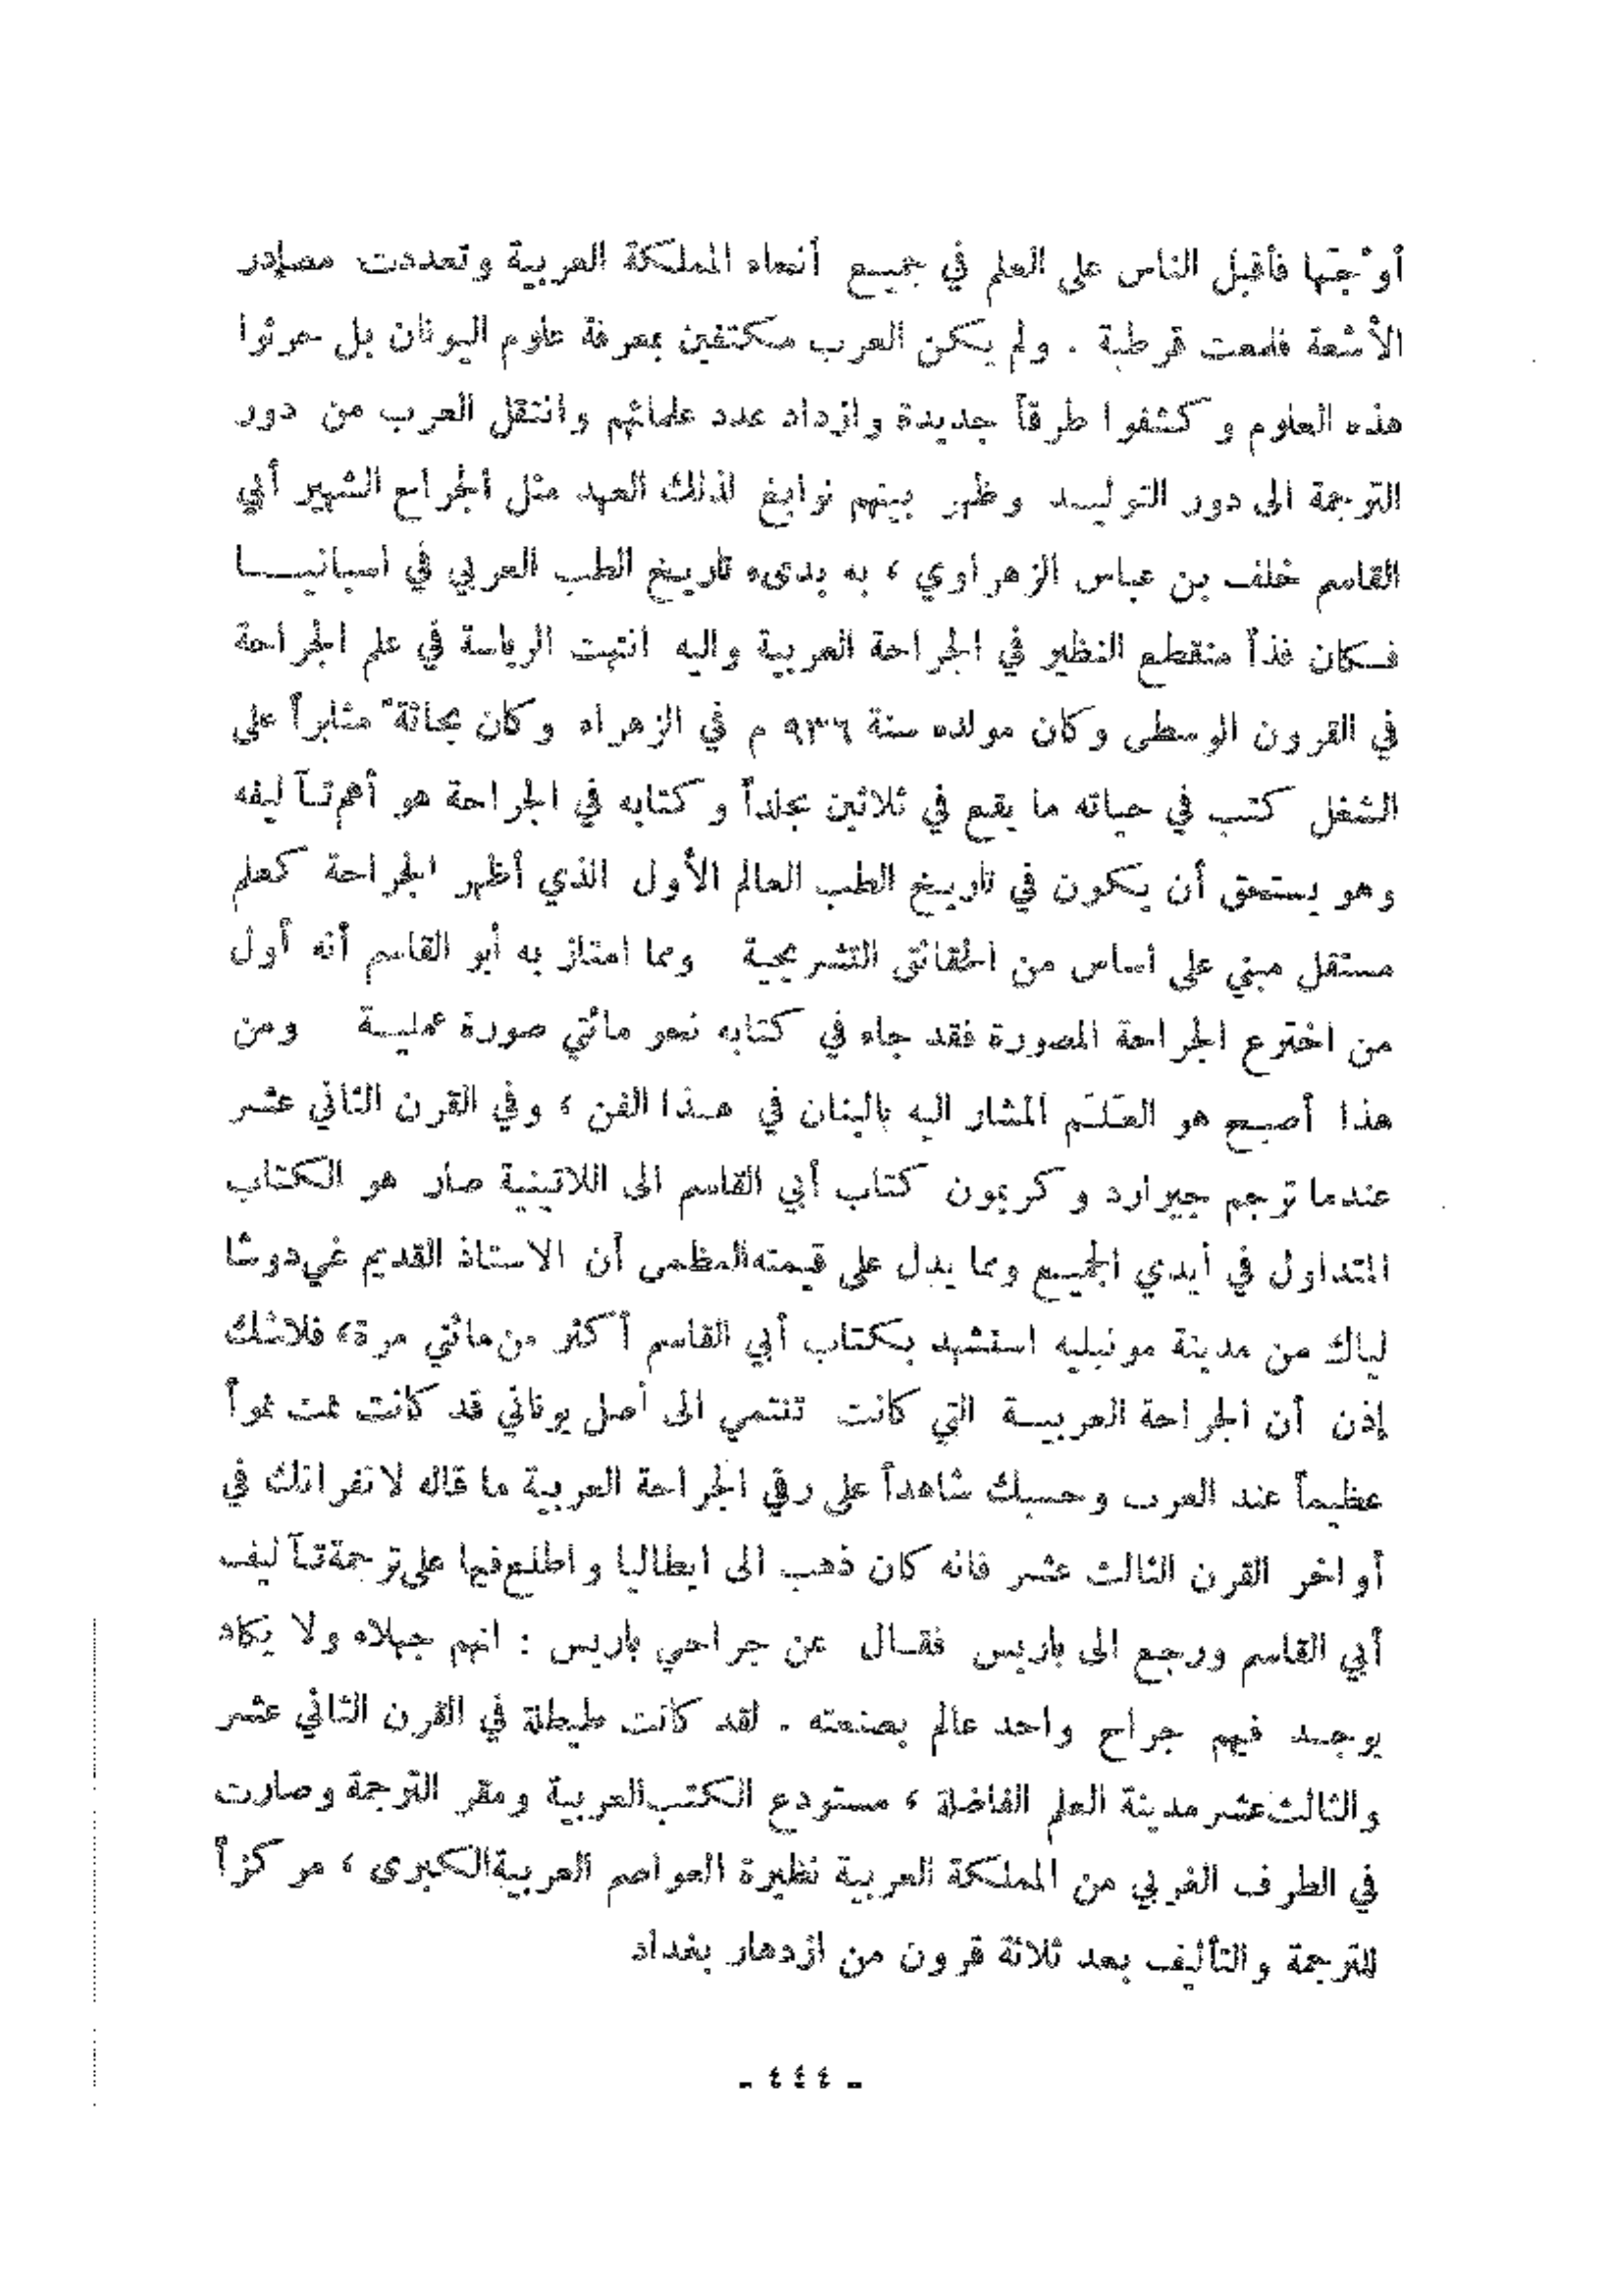 أوْجَها فأقبل الناس على العلم في جميع أنحاء المملكة العربية وتعددت مصادر
الأشعة فلمعت قرطبة . ولم يكن العرب مكتفين بمعرفة علوم اليونان بل حرثوا
هذه العلوم وكشفوا طرقاً جديدة وازداد عدد علمائهم وانتقل العرب من دور
الترجمة الى دور التوليد وظهر بينهم نوابغ لذلك العهد مثل الجراح الشهير أبي
القاسم خلف بن عباس الزهراوي ، به بدىء تاريخ الطب العربي في اسبانيا
فكان فذاً منقطع النظير في الجراحة العربية واليه انتهت الرياسة في علم الجراحة
في القرون الوسطى وكان مولده سنة ٩٣٦ م في الزهراء وكان بحاثة مثابراً على
الشغل كتب في حياته ما يقع في ثلاثين مجلداً وكتابه في الجراحة هو أهم تآليفه
وهو يستحق أن يكون في تاريخ الطب العالم الأول الذي أظهر الجراحة كعلم
مستقل مبني على أساس من الحقائق التشريحية ومما امتاز به أبو القاسم أنه أول
من اخترع الجراحة المصورة فقد جاء في كتابه نحو مائتي صورة عملية ومن
هذا أصبح هو العَلَم المشار اليه بالبنان في هذا الفن ، وفي القرن الثاني عشر
عندما ترجم جيرارد وكريمون كتاب أبي القاسم الى اللاتينية صار هو الكتاب
المتداول في أيدي الجميع ومما يدل على قيمته العظمى أن الاستاذ القديم غي دوشا
لياك من مدينة مونبليه استشهد بكتاب أبي القاسم أكثر من مائتي مرة، فلا شك
إذن أن الجراحة العربية التي كانت تنتمي الى أصل يوناني قد كانت نمت نمواً
عظيماً عند العرب وحسبك شاهداً على رقي الجراحة العربية ما قاله لانفرانك في
أواخر القرن الثالث عشر فانه كان ذهب الى ايطاليا واطلع فيها على ترجمة تآليف
أبي القاسم ورجع الى باريس فقال عن جراحي باريس : انهم جهلاء ولا يكاد
يوجد فيهم جراح واحد عالم بصنعته . لقد كانت طيطلة في القرن الثاني عشر
والثالث عشر مدينة العلم الفاضلة ، مستودع الكتب العربية ومقر الترجمة وصارت
في الطرف الغربي من المملكة العربية نظيرة العواصم العربية الكبرى ، مركزاً
للترجمة والتأليف بعد ثلاثة قرون من ازدهار بغداد
- ٤٤٤ -